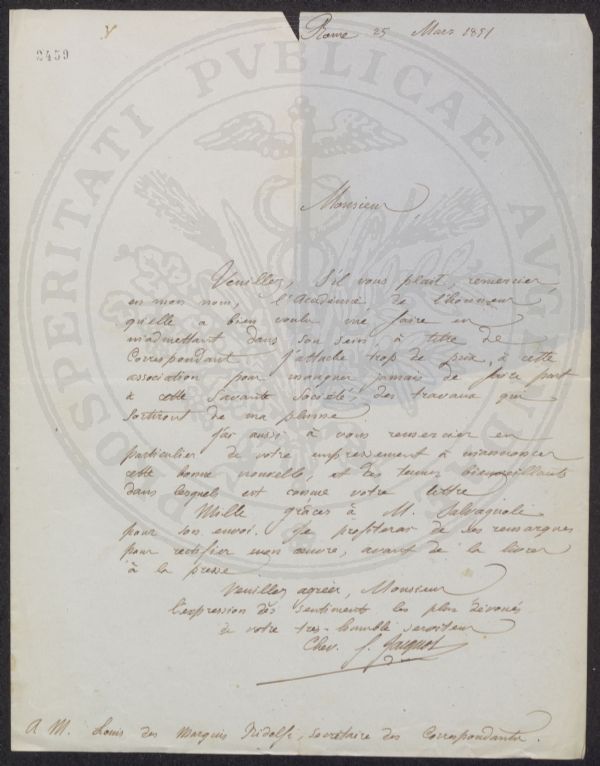 Rome 25 Mars 1851
2459
Monsieur
Veuillez, s'il vous plait remercier
en mon nom, l'Académie de l'honneur
qu'elle a bien voulu me faire en
m'admettant dans son sein à titre de
Correspondant J'attache trop de prix, à cette
association pour manquer jamais de faire part
à cette Savante Société, des travaux qui
sortiront de ma plume
J'ai aussi à vous remercier en
particulier de votre empressement à m'annoncer
cette bonne nouvelle, et des termes bienveillants
dans lesquels est conçue votre lettre
Mille grâces à M. Salvagnoli
pour son envoi. Je profiterai de ses remarques
pour rectifier mon œuvre, avant de la livrer
à la presse
Veuillez agréer, Monsieur
l'expression des sentiments les plus dévoués
de votre très-humble serviteur
Chev. f. Jacquot
A M. Louis des Marquis Ridolfi, Secrétaire des Correspondants.
PROSPERITATI PVBLICAE AVGENDAE